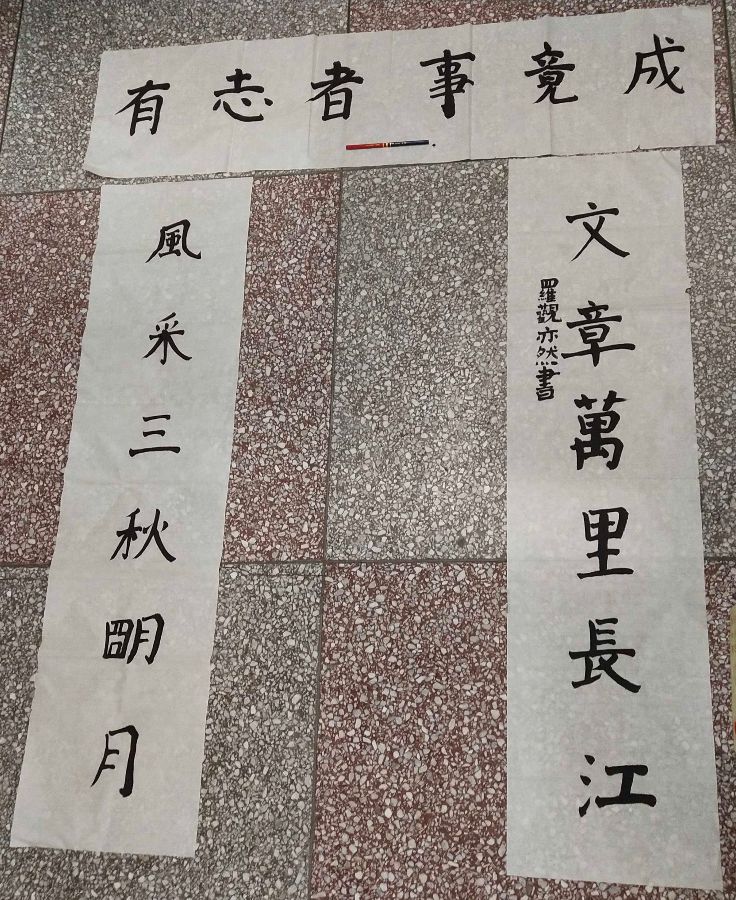 有志者事竟成
風采三秋明月
文章萬里長江
羅觀亦然書